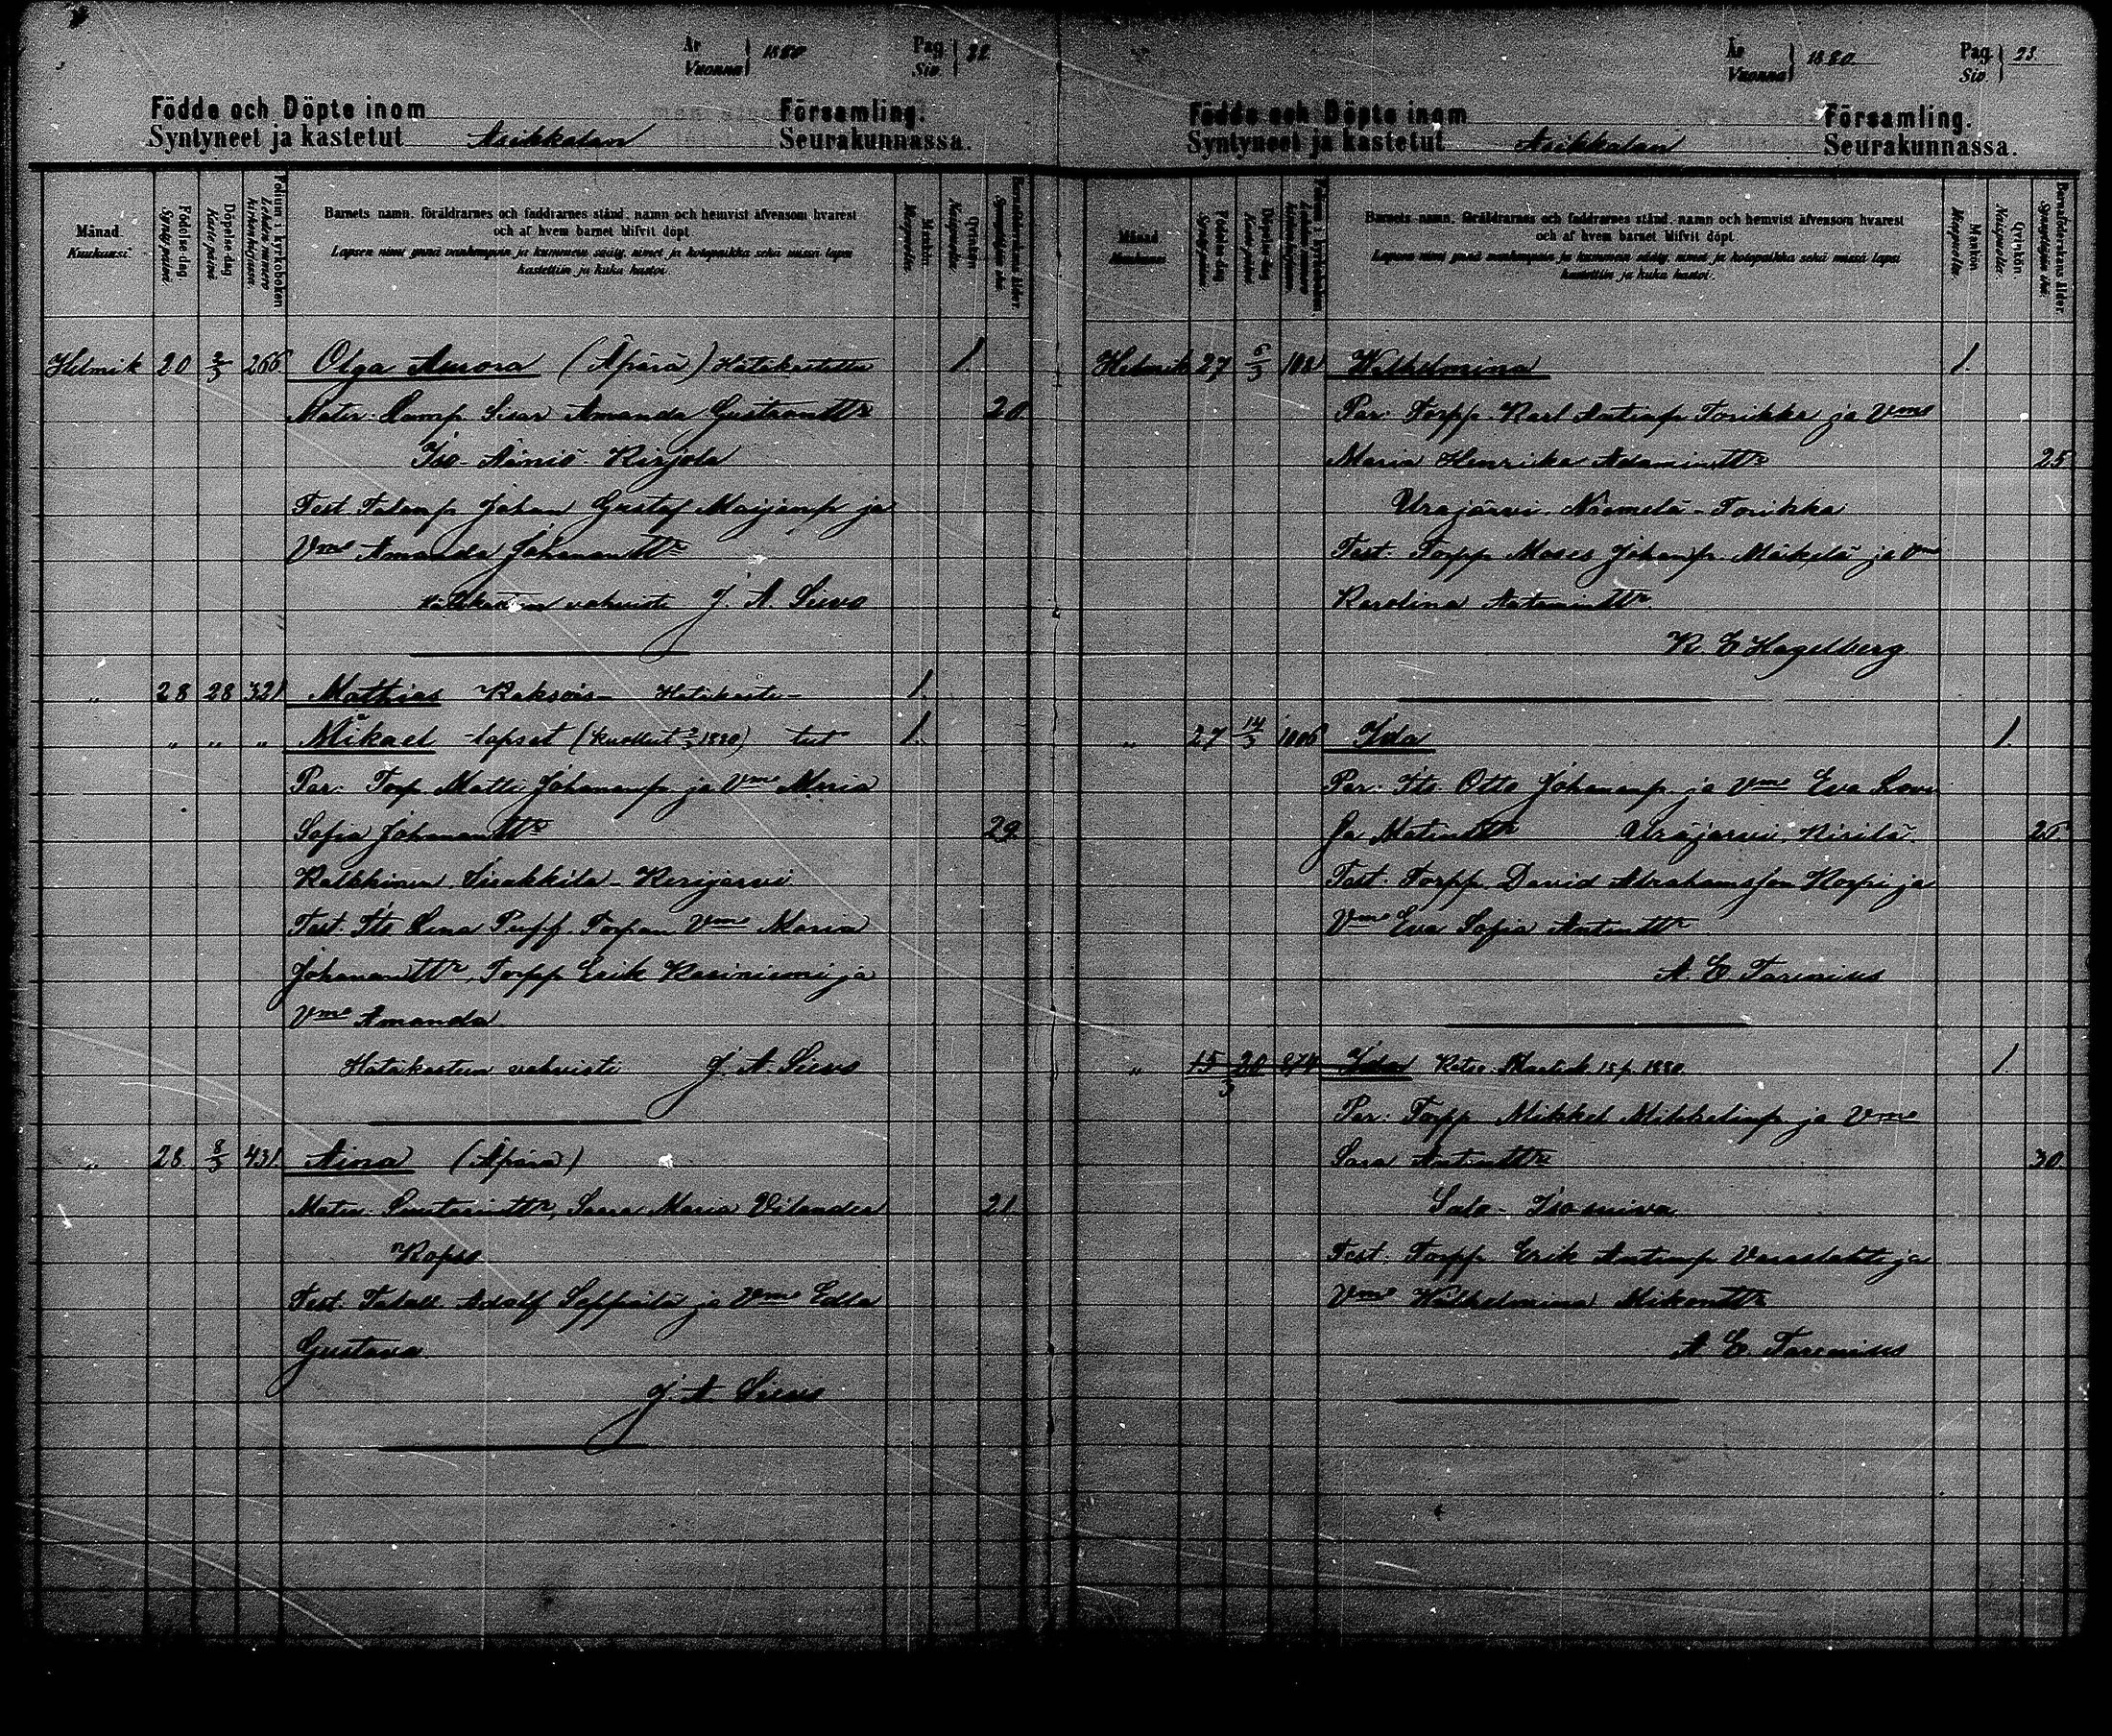 År Vuonna } 1880 Pag. Siv. } 22.
Födde och Döpte inom Församling.
Syntyneet ja kastetut Asikkalan Seurakunnassa.
Månad. Kuukausi.
Födelse-dag. Syntymäpäivä.
Döpelse-dag. Kastepäivä.
Folium i kyrkoboken. Lehden numero kirkonkirjaan.
Barnets namn, föräldrarnes och faddrarnes stånd, namn och hemvist äfvensom hvarest
och af hvem barnet blifvit döpt.
Lapsen nimi ynnä vanhempain ja kummein sääty, nimet ja kotopaikka sekä missä lapsi
kastettiin ja kuka kastoi.
Mankön. Miespuolia.
Qvinkön. Naispuolia.
Barnaföderskans ålder. Synnyttäjän ikä.
Helmik 20 2/3 266 Olga Aurora (Äpärä) Hätäkastettu 1.
Mater: Lamp. Sisar Amanda Gustaantr 20
Iso-Äiniö-Kirjola
Test. Talonp Johan Gustaf Maijanp ja
Vmo Amanda Johanantr
Hätäkasteen vahvisti J. A. Sievo
„ 28 28 321 Mathias Kaksois- Hätäkaste- 1.
„ „ „ Mikael -lapset (kuolleet 2/3 1880) tut 1.
Par: Torp. Matti Johananp. ja Vmo Maria
Sofia Johanantr 29
Kalkkinen. Sirakkila-Kerijärvi
Test. Its Lena Puff. Torpan Vmo Maria
Johanantr, Torpp Erik Kasiniemi ja
Vmo Amanda
Hätäkasteen vahvisti J. A. Sievo
„ 28 8/3 431 Aina (Äpärä)
Mater. Saara Maria Vilander 21
Kopso
Test. Talall. Adolf Seppälä ja Vmo Edla
Gustava
J. A. Sievo
År Vuonna } 1880 Pag. Siv. } 23.
Födde och Döpte inom Församling.
Syntyneet ja kastetut Asikkalan Seurakunnassa.
Månad. Kuukausi.
Födelse-dag. Syntymäpäivä.
Döpelse-dag. Kastepäivä.
Folium i kyrkoboken. Lehden numero kirkonkirjaan.
Barnets namn, föräldrarnes och faddrarnes stånd, namn och hemvist äfvensom hvarest
och af hvem barnet blifvit döpt.
Lapsen nimi ynnä vanhempain ja kummein sääty, nimet ja kotopaikka sekä missä lapsi
kastettiin ja kuka kastoi.
Mankön. Miespuolia.
Qvinkön. Naispuolia.
Barnaföderskans ålder. Synnyttäjän ikä.
Helmik 27 6/3 Wilhelmina 1.
Par: Torpp. Karl Antinp Torikka ja Vmo
Maria Henrika Adamintr 25
Urajärvi. Niemelä-Torikka
Test. Torpp Moses Johanp. Mäkelä ja Vmo
Karolina Antamintr
K E Hagelberg
„ 27 14/3 1006 Ida 1.
Par: Its. Otto Johananp. ja Vmo Eva Lovi
sa Matintr Urajärvi. Kirilä. 26
Test. Torpp. David Abrahamsson Korpi ja
Vmo Eva Sofia Antintr
A. E. Tarenius
„ 15/3 20 Ida Katso Maalisk. 15 p. 1880. 1.
Par: Torpp Mikkel Mikkelinp ja Vmo
Sara Antintr 30
Salo-Isoniva
Test. Torpp. Erik Antinp Varaslahti ja
Vmo Wilhelmina Mikontr
A. E. Tarenius